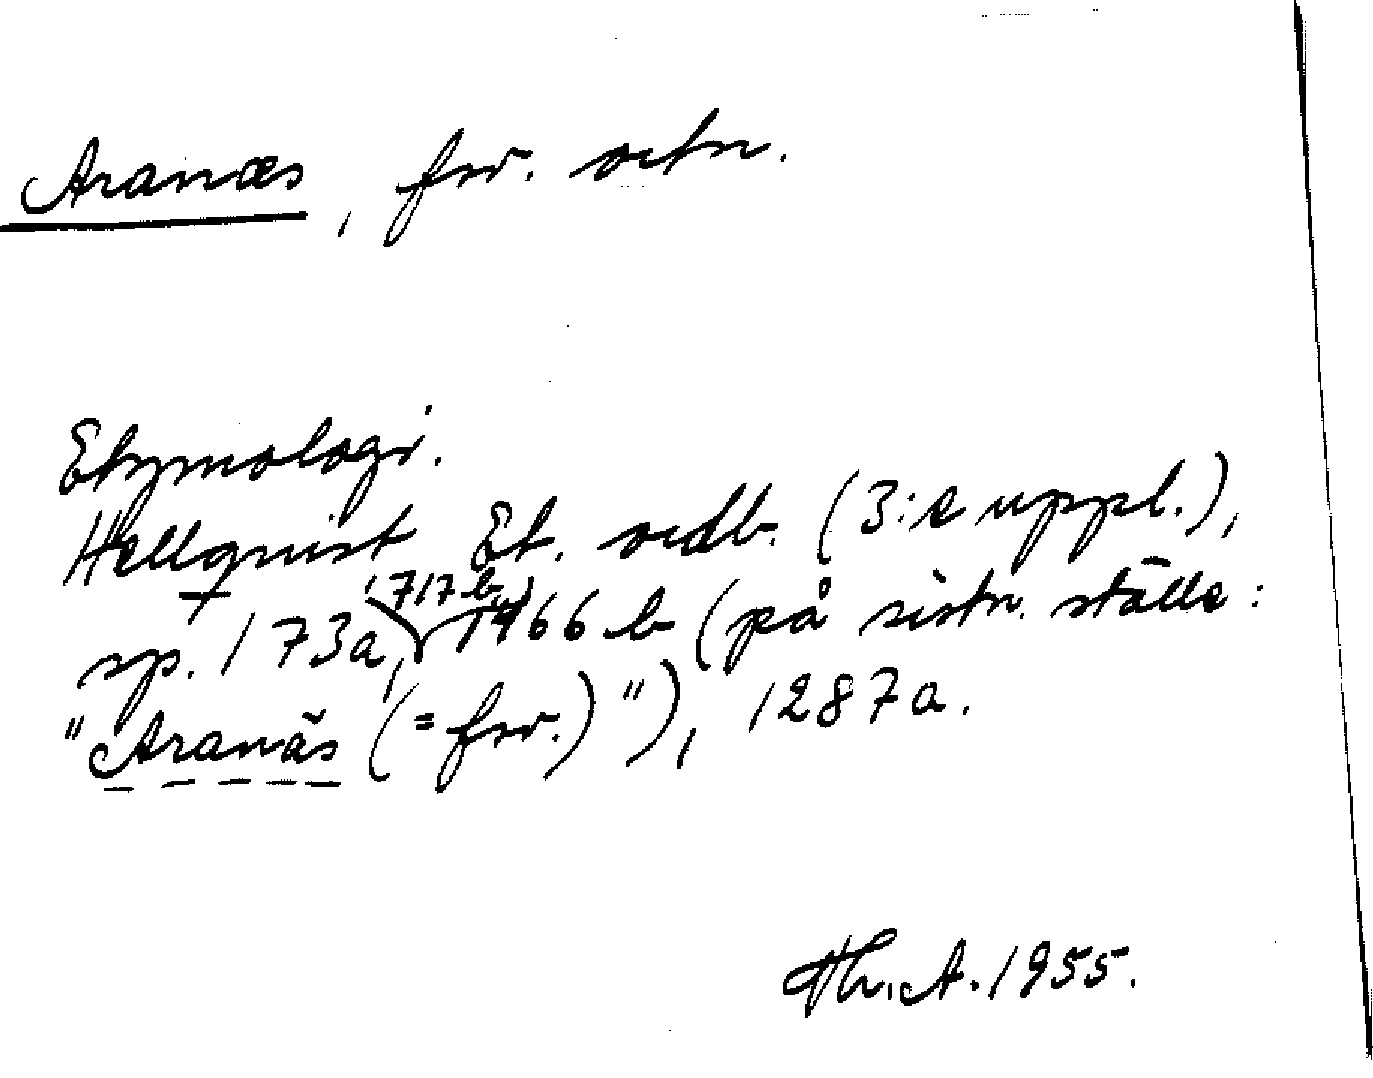 Aranæs, fsv. ortn.
Etymologi.
Hellquist Et. ordb. (3:e uppl.),
sp. 173a, (717 b,) 1466 b (på sistn. ställe:
"Aranäs (= fsv.)"), 1287a.
Th. A. 1955.